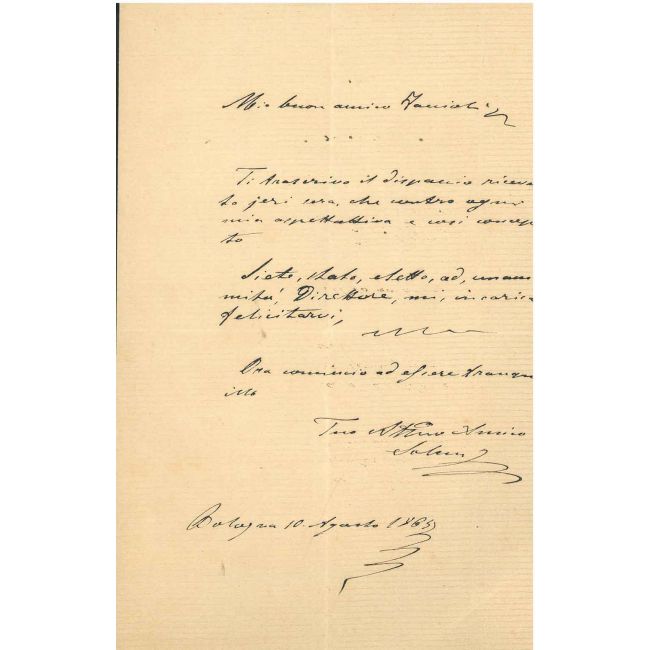 Mio buon amico
Ti trascrivo il dispaccio ricevu
to jeri sera, che contro ogni
mia aspettativa e così concep
to
Siete, stato, eletto, ad, unani
mità, Direttore, mi, incarica
felicitarvi,
Ora comincio ad essere tranqui
illo
Tuo Affmo Amico
Bologna 10. Agosto